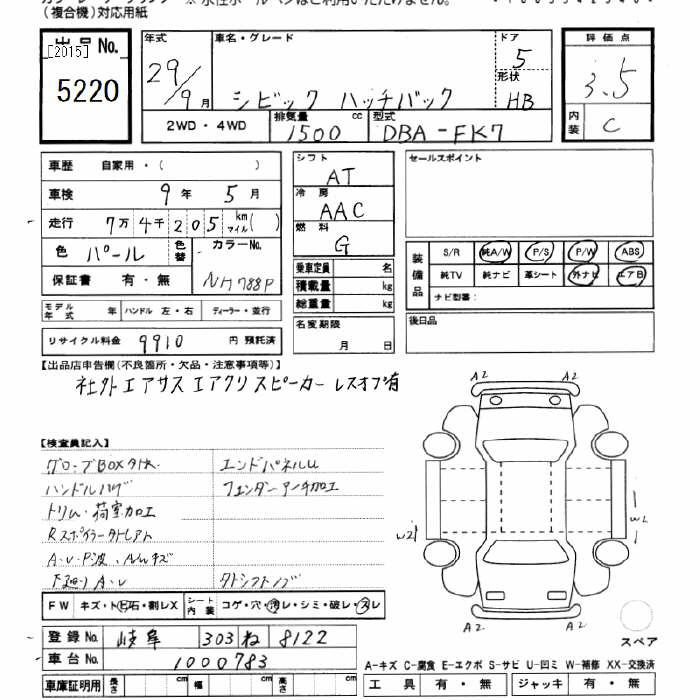 (複合機)対応用紙
出品No.
[2015]
5220
年式 29/9月
車名・グレード シビック ハッチバック
ドア 5
形状 HB
2WD・4WD
排気量 1500 cc
型式 DBA-FK7
評価点 3.5
内装 C
車歴 自家用・( )
車検 9年 5月
走行 7万4千205 km マイル( )
色 パール 色替
カラーNo. NH788P
保証書 有・無
モデル年式 年 ハンドル 左・右 ディーラー・並行
リサイクル料金 9910 円 預託済
シフト AT
冷房 AAC
燃料 G
乗車定員 名
積載量 kg
総重量 kg
名変期限
月 日
セールスポイント
装備品 S/R 純A/W P/S P/W ABS
純TV 純ナビ 革シート 外ナビ エアB
ナビ型番:
後日品
【出品店申告欄(不良箇所・欠品・注意事項等)】
社外エアサス エアクリ スピーカー レスオプ有
【検査員記入】
グローブBOX欠 エンドパネルU
フェンダーアーチ加工
トリム・荷室加工
A・U・P波、A/Wキズ
下廻りA・U
FW キズ・ト石・割レX シート内装 コゲ・穴・汚レ・シミ・破レ・スレ
登録No. 岐阜 303 ね 8122
車台No. 1000783
車庫証明用 長さ cm 幅 cm 高さ cm
A2 A2
W2
W2
A2 A2
スペア
A-キズ C-腐食 E-エクボ S-サビ U-凹ミ W-補修 XX-交換済
工具 有・無 ジャッキ 有・無